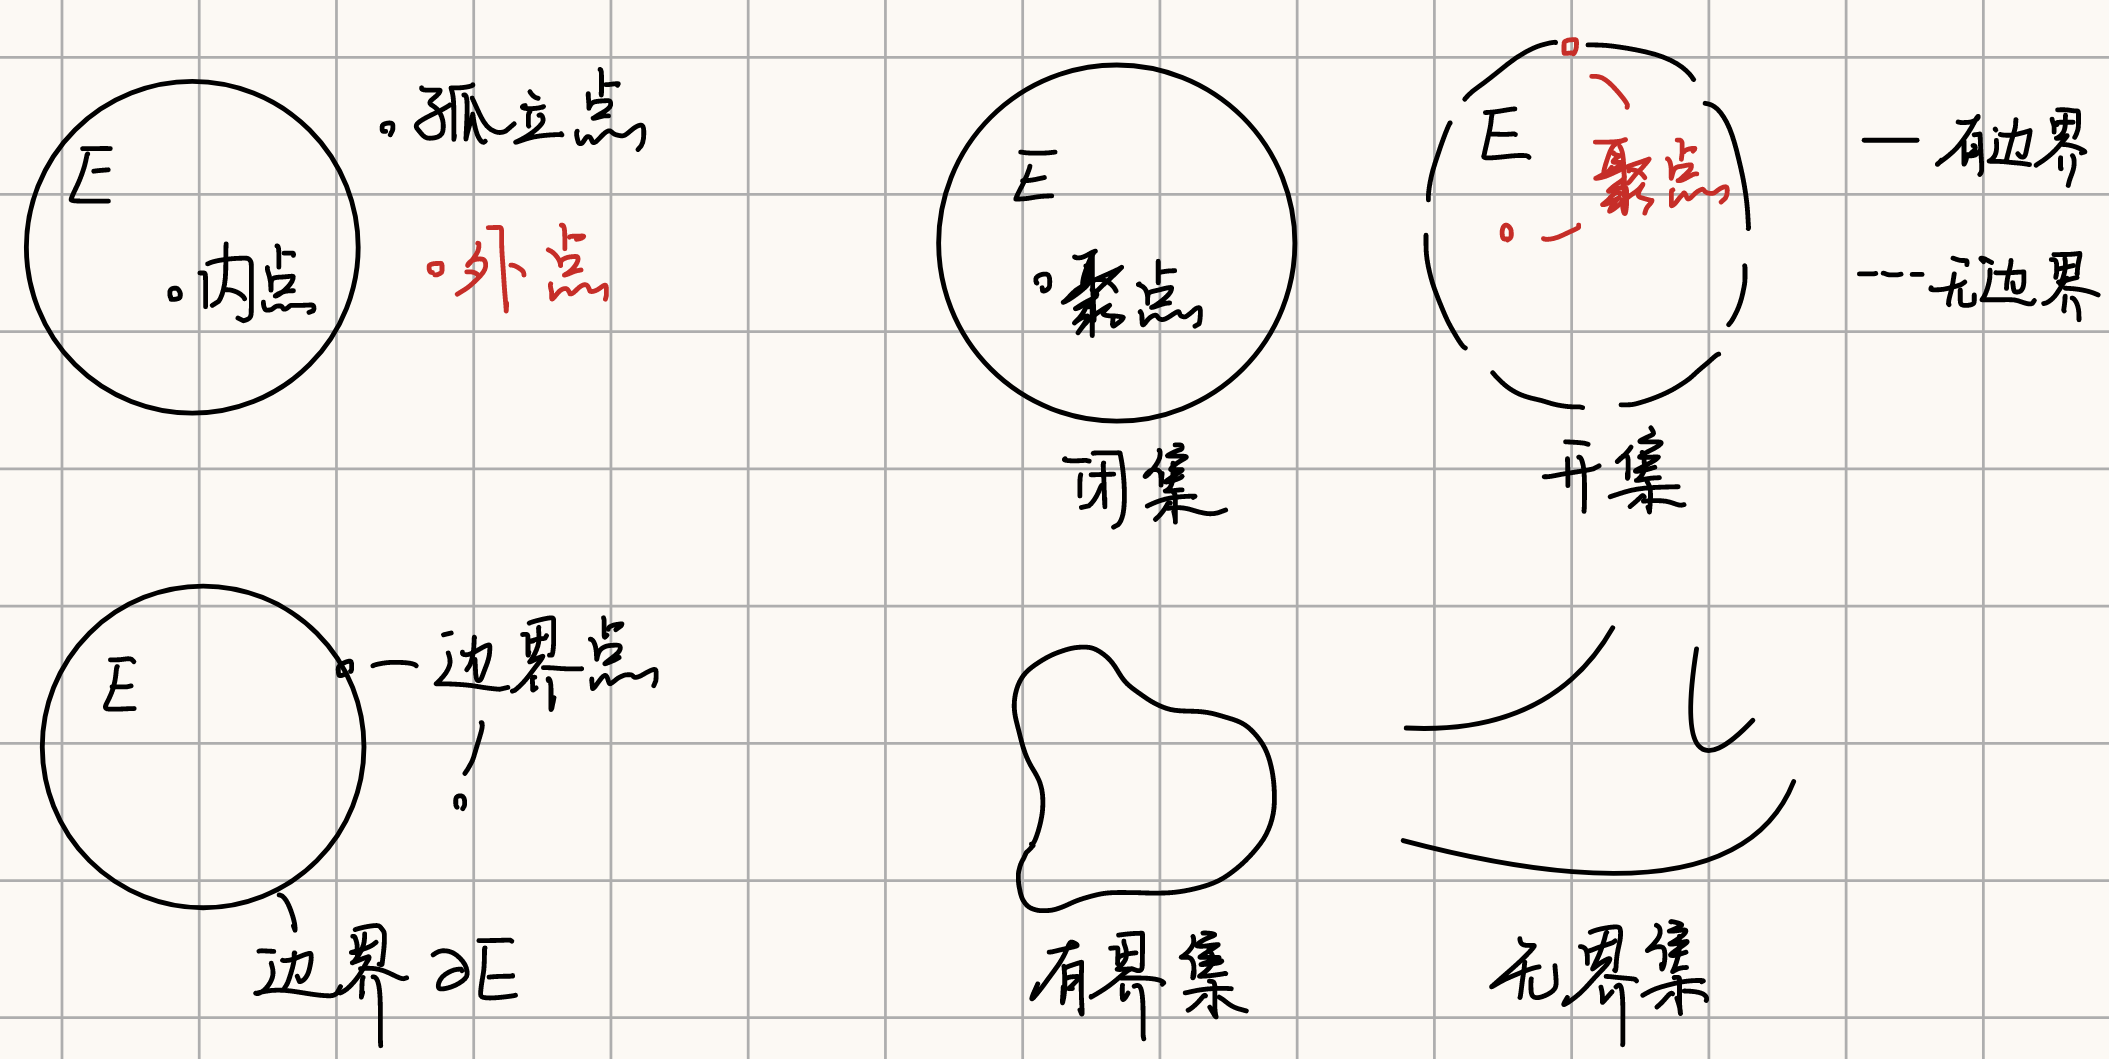 E
孤立点
外点
内点
E
聚点
闭集
E
聚点
开集
有边界
无边界
E
边界点
边界 ∂E
有界集
无界集